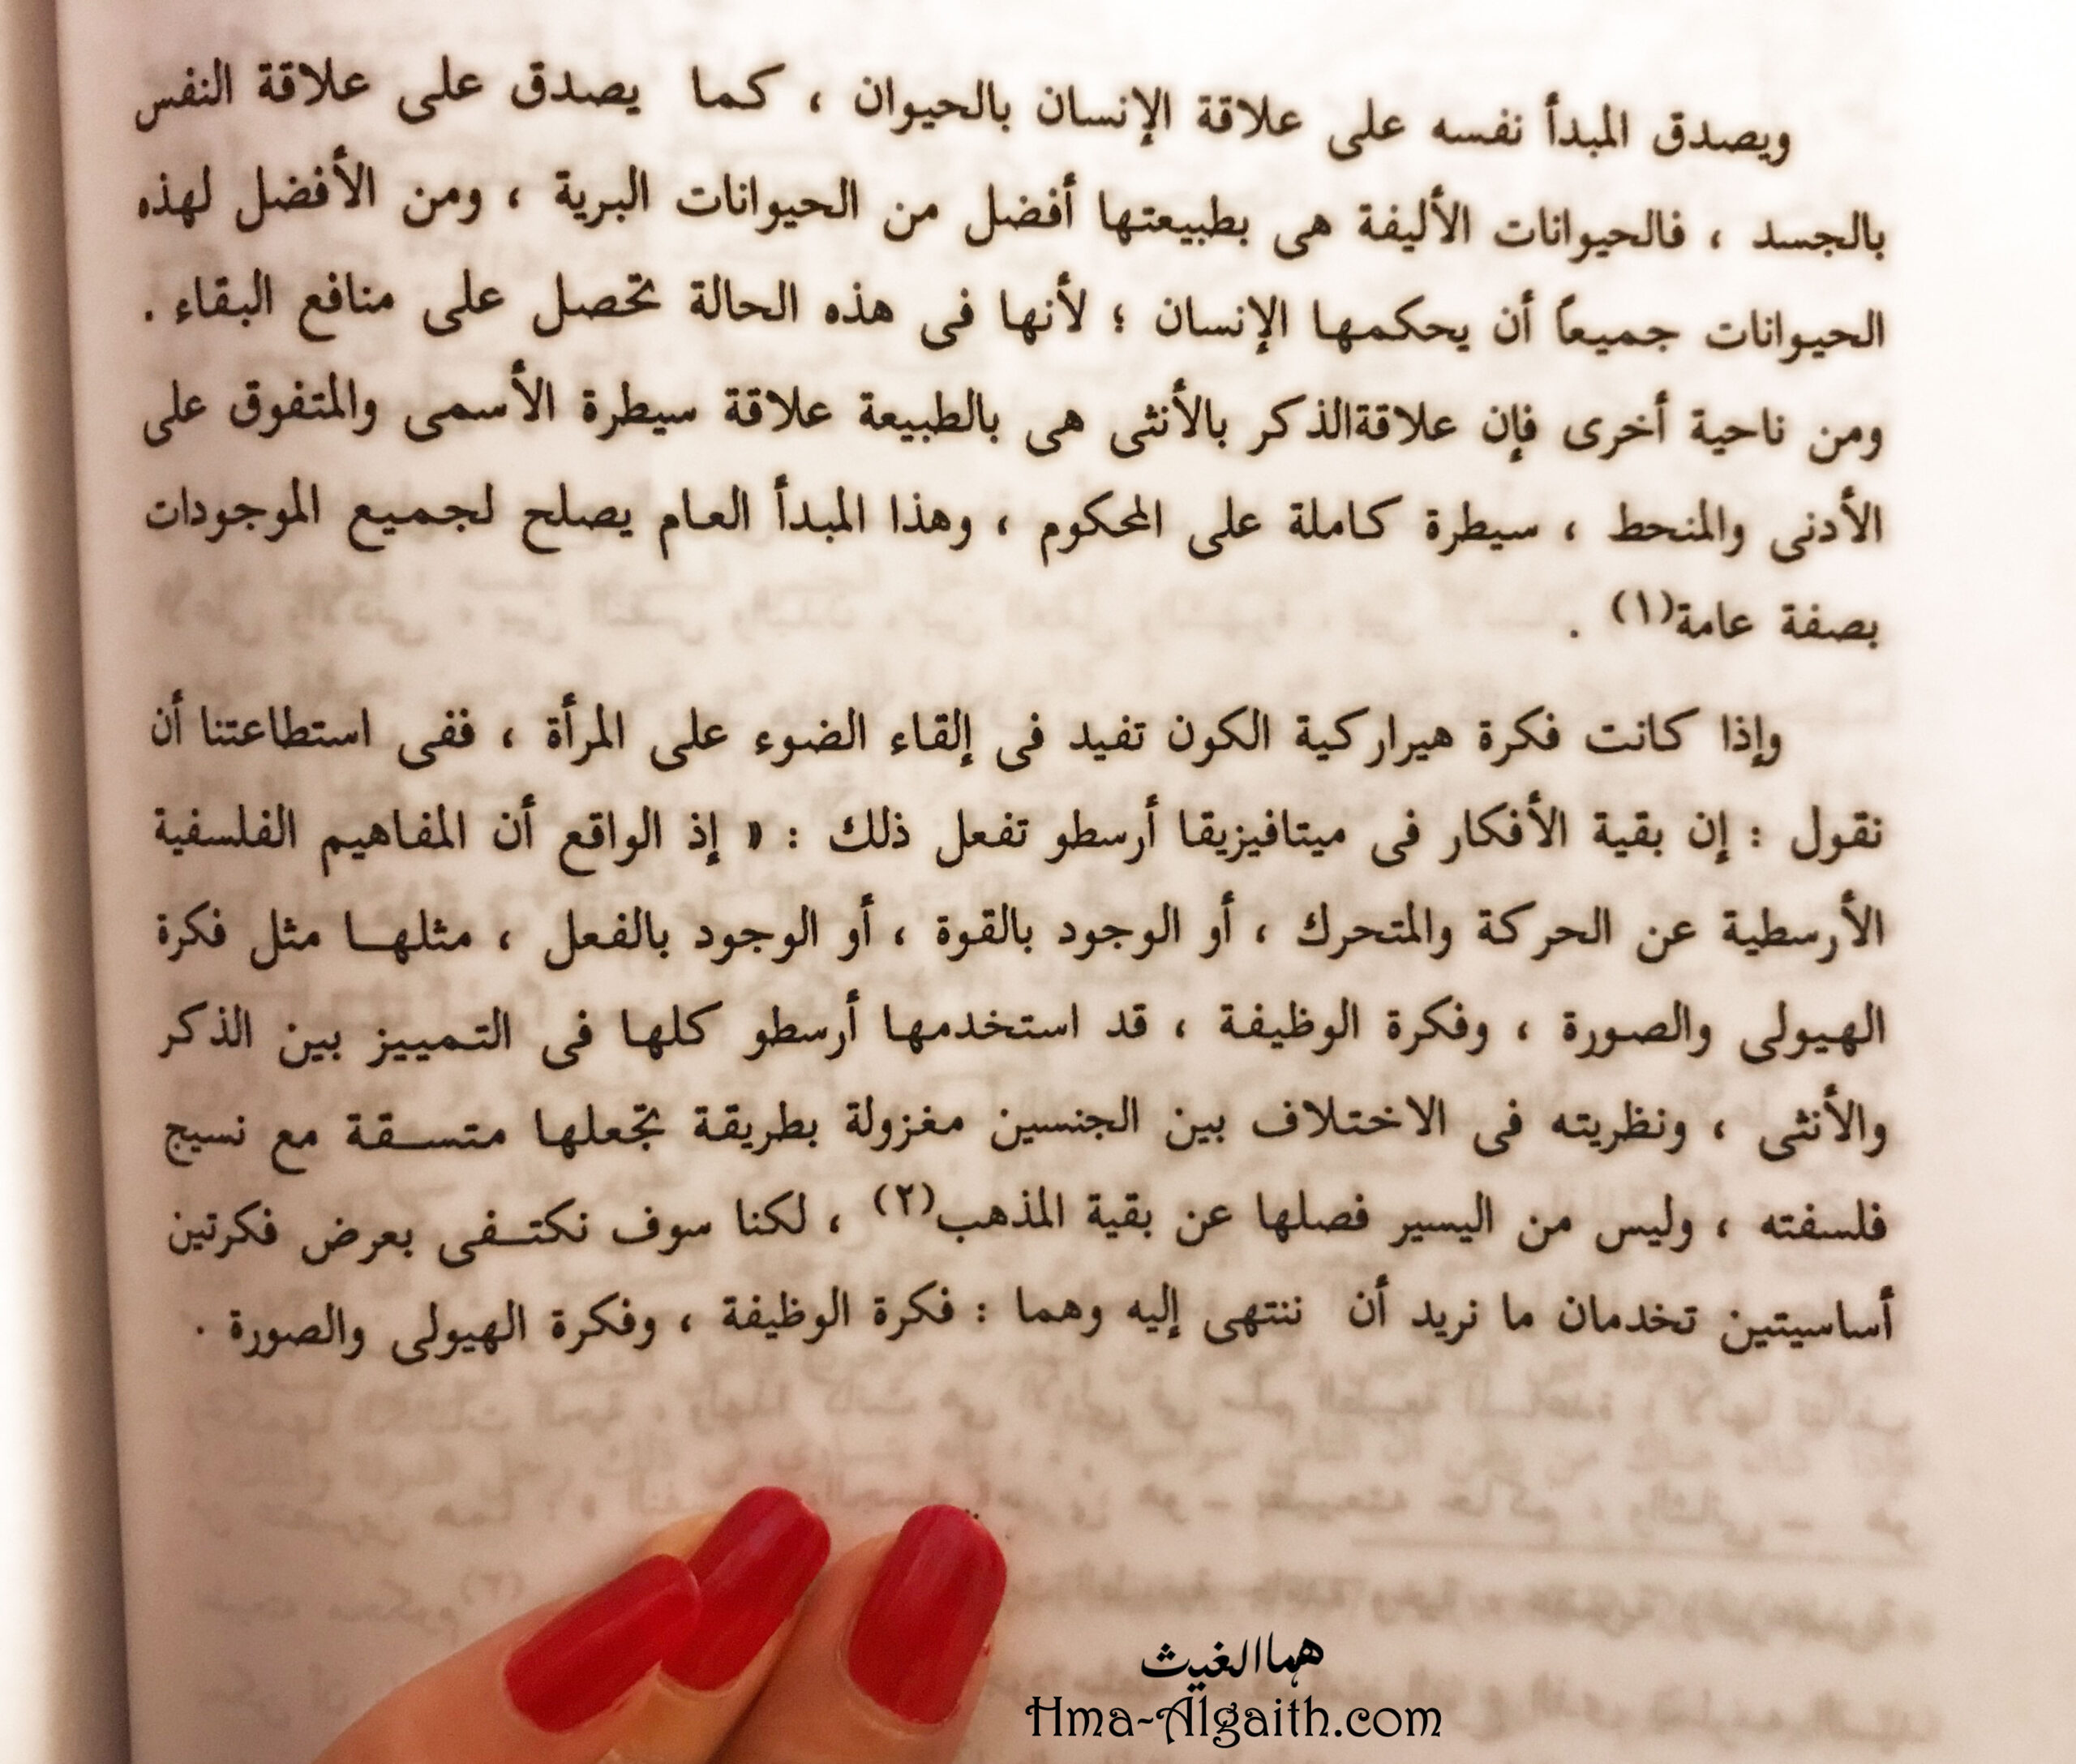 ويصدق المبدأ نفسه على علاقة الإنسان بالحيوان ، كما يصدق على علاقة النفس
بالجسد ، فالحيوانات الأليفة هى بطبيعتها أفضل من الحيوانات البرية ، ومن الأفضل لهذه
الحيوانات جميعاً أن يحكمها الإنسان ؛ لأنها فى هذه الحالة تحصل على منافع البقاء .
ومن ناحية أخرى فإن علاقةالذكر بالأنثى هى بالطبيعة علاقة سيطرة الأسمى والمتفوق على
الأدنى والمنحط ، سيطرة كاملة على المحكوم ، وهذا المبدأ العام يصلح لجميع الموجودات
بصفة عامة(١) .
وإذا كانت فكرة هيراركية الكون تفيد فى إلقاء الضوء على المرأة ، ففى استطاعتنا أن
نقول : إن بقية الأفكار فى ميتافيزيقا أرسطو تفعل ذلك : « إذ الواقع أن المفاهيم الفلسفية
الأرسطية عن الحركة والمتحرك ، أو الوجود بالقوة ، أو الوجود بالفعل ، مثلها مثل فكرة
الهيولى والصورة ، وفكرة الوظيفة ، قد استخدمها أرسطو كلها فى التمييز بين الذكر
والأنثى ، ونظريته فى الاختلاف بين الجنسين مغزولة بطريقة تجعلها متسقة مع نسيج
فلسفته ، وليس من اليسير فصلها عن بقية المذهب(٢) ، لكنا سوف نكتفى بعرض فكرتين
أساسيتين تخدمان ما نريد أن ننتهى إليه وهما : فكرة الوظيفة ، وفكرة الهيولى والصورة .
هما الغيث
Hma-Algaith.com